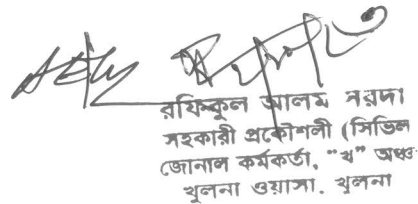 রফিকুল আলম সরদা
সহকারী প্রকৌশলী (সিভিল
জোনাল কর্মকর্তা, "খ" অঞ্চ
খুলনা ওয়াসা. খুলনা